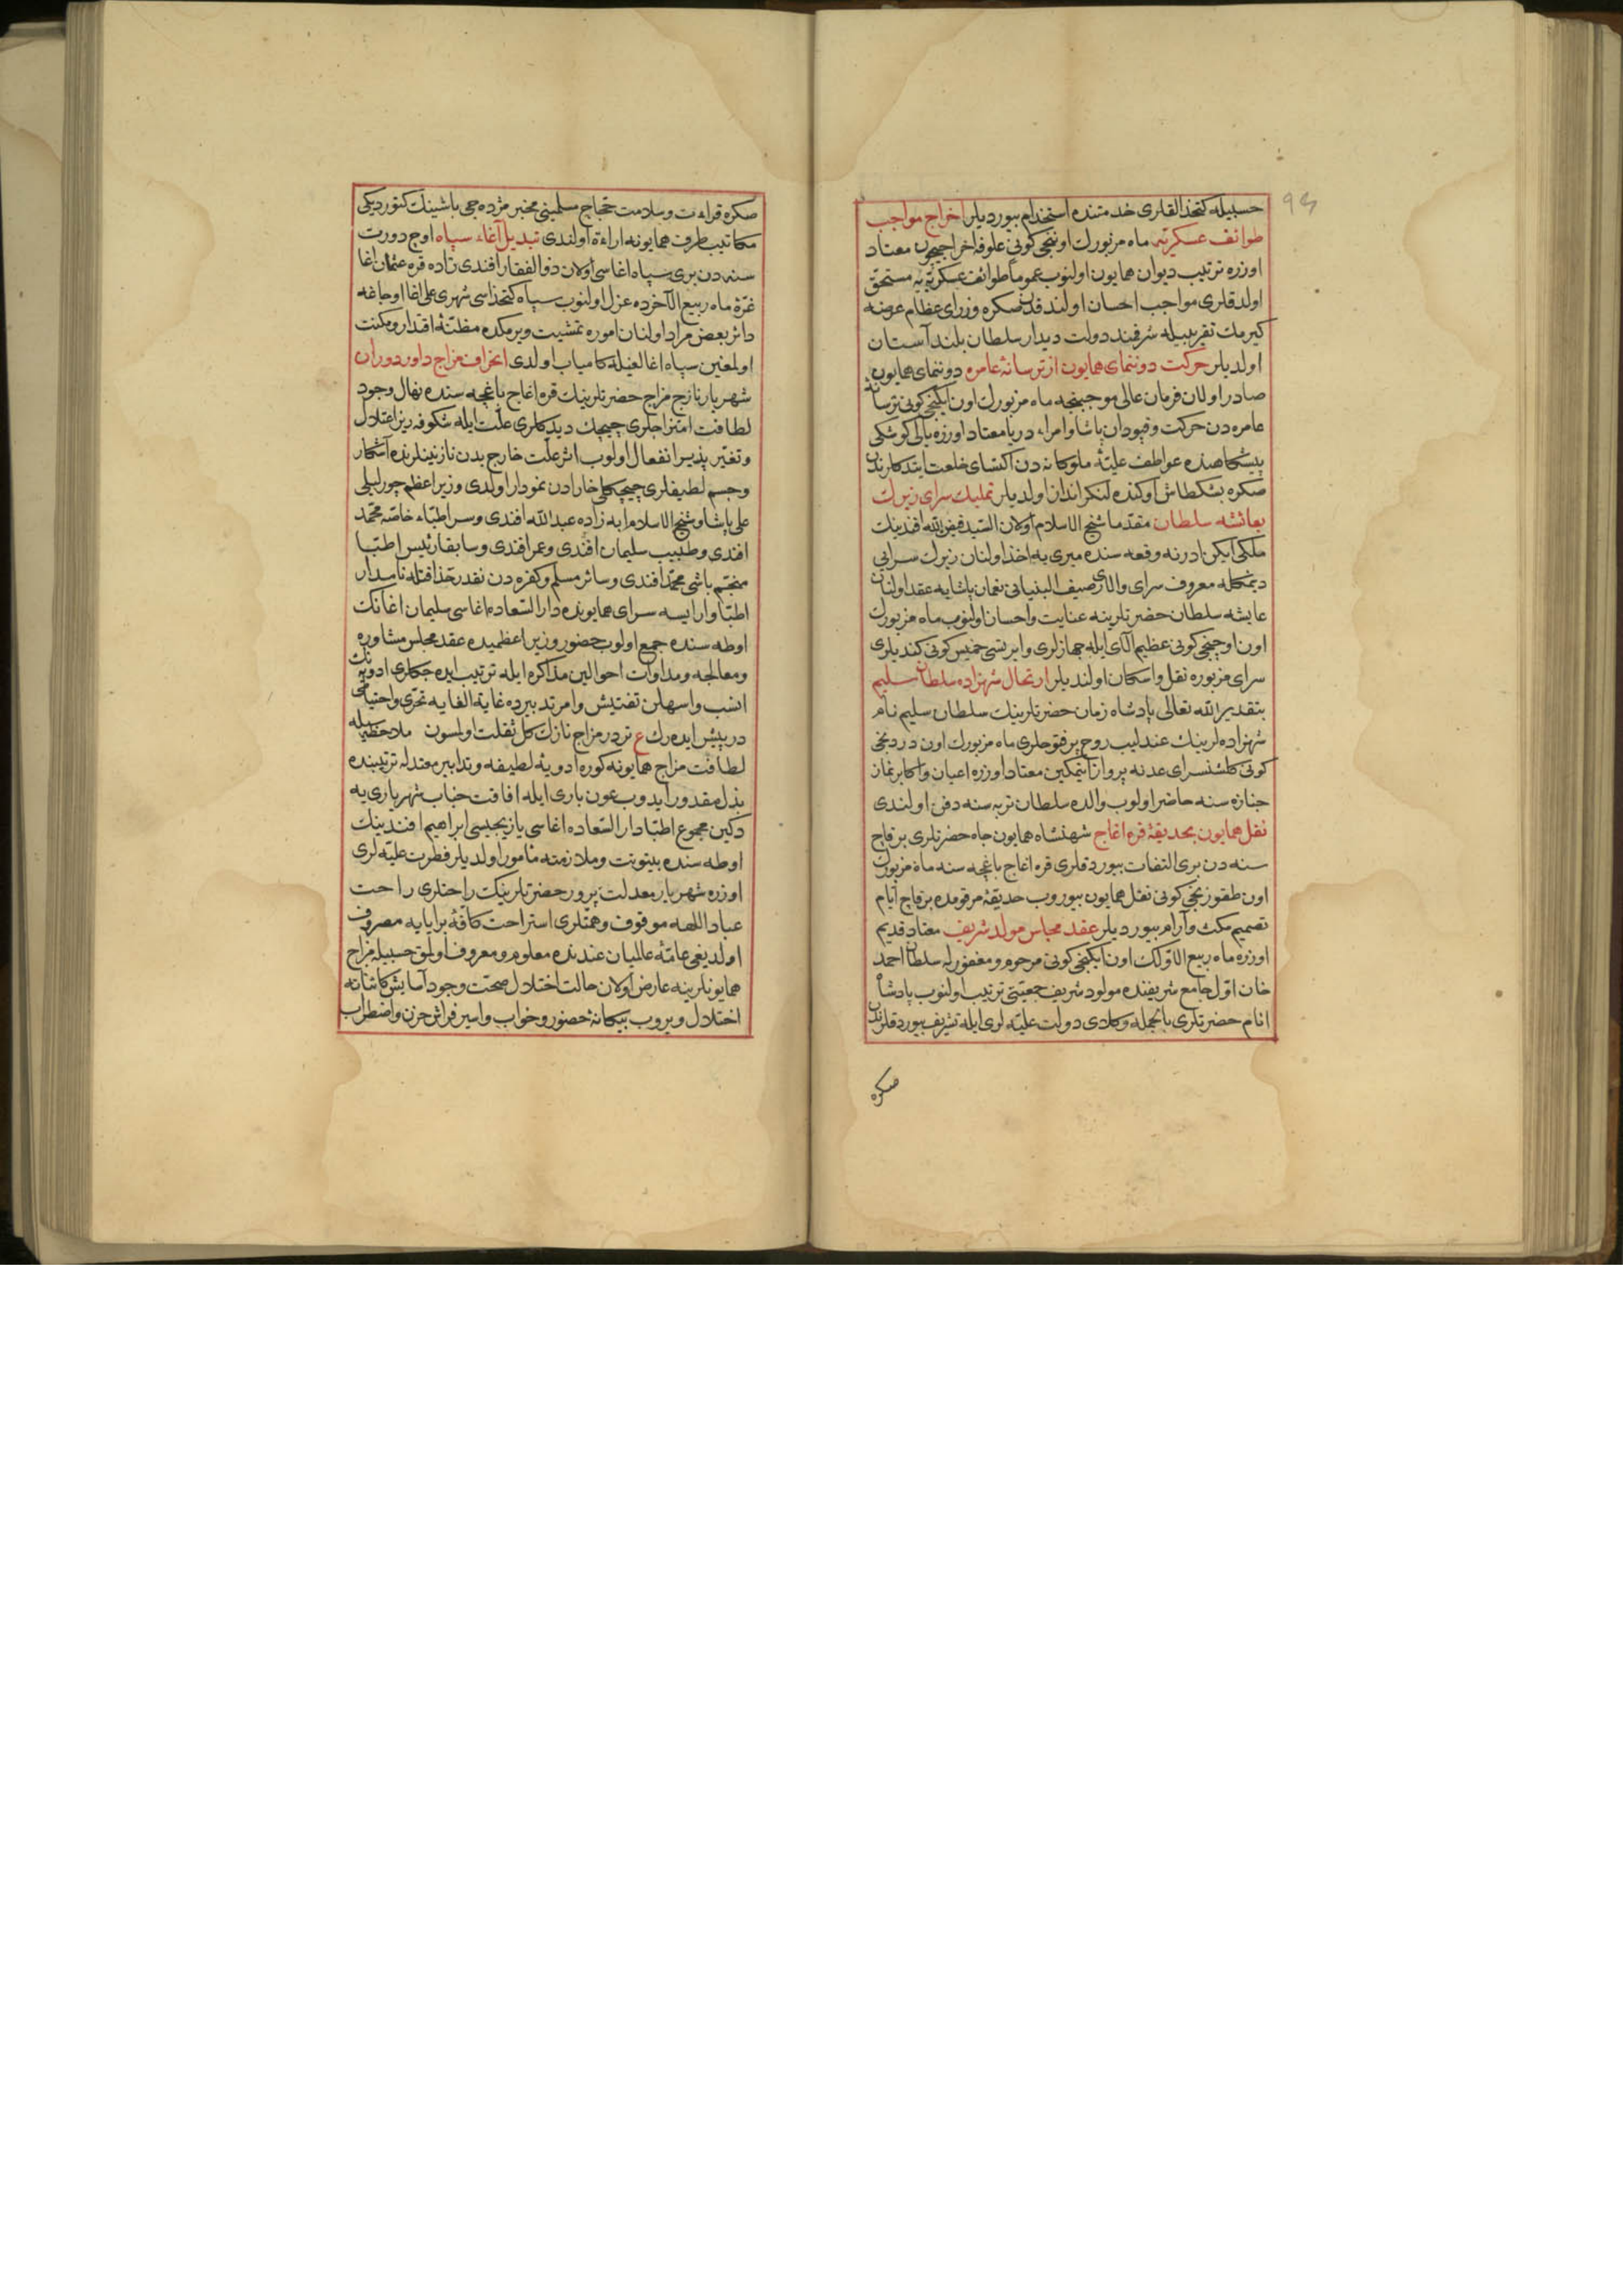 حسبیله کتخذالقلری خدمتنده استخدام بیوردیلر اخراج مواجب
طوائف عسکریه ماه مزبورك اوننجی کونی علوفه اخراجیچون معتاد
اوزره ترتیب دیوان همایون اولنوب عموما طوائف عسکریه یه مستحق
اولدقلری مواجب احسان اولندقدن صکره وزرای عظام عرضه
کیرمك تقریبیله شرفمند دولت دیدار سلطان بلند آستان
اولدیلر حرکت دوننمای همایون از ترسانهٔ عامره دوننمای همایون
صادر اولان فرمان عالی موجبنجه ماه مزبورك اون ایکنجی کونی ترسانهٔ
عامره دن حرکت وقپودان پاشا وامراء دریا معتاد اوزره یالی کوشکی
پیشکاهنده عواطف علیهٔ ملوکانه دن اکتسای خلعت ایتدکلرندن
صکره بشکطاش اوکنده لنکرانداز اولدیلر تملیك سرای زیرك
بعائشه سلطان مقدما شیخ الاسلام اولان السید فیض الله افندینك
ملکی ایکن ادرنه وقعه سنده میری یه اخذ اولنان زیرك سرایی
دیمکله معروف سرای والای رصیف البنیانی نعمان پاشایه عقد اولنان
عایشه سلطان حضرتلرینه عنایت واحسان اولنوب ماه مزبورك
اون اوچنجی کونی عظیم آلای ایله جهازلری وایرتسی خمیس کونی کندیلری
سرای مزبوره نقل واسکان اولندیلر ارتحال شهزاده سلطان سلیم
بتقدیر الله تعالی پادشاه زمان حضرتلرینك سلطان سلیم نام
شهزاده لرینك عندلیب روح پرفتوحلری ماه مزبورك اون دردنجی
کونی کلشنسرای عدنه پرواز ایتمکین معتاد اوزره اعیان واکابر نماز
جنازه سنه حاضر اولوب والده سلطان تربه سنه دفن اولندی
نقل همایون بحدیقهٔ قره اغاج شهنشاه همایون جاه حضرتلری برقاچ
سنه دن بری التفات بیوردقلری قره اغاج باغچه سنه ماه مزبورك
اون طقوزنجی کونی نقل همایون بیوروب حدیقهٔ مرقومده برقاچ ایام
تصمیم مکث وآرام بیوردیلر عقد مجلس مولد شریف معتاد قدیم
اوزره ماه ربیع الاولك اون ایکنجی کونی مرحوم ومغفور له سلطان احمد
خان اول جامع شریفنده مولود شریف جمعیتی ترتیب اولنوب پادشاه
انام حضرتلری بالجمله وکلای دولت علیه لری ایله تشریف بیوردقلرندن
صکره
صکره قراءت وسلامت حجاج مسلمینی مخبر مژده جی باشینك کتوردیکی
مکاتیب طرف همایونه اراءة اولندی تبدیل آغاء سپاه اوج دورت
سنه دن بری سپاه اغاسی اولان ذوالفقار افندی زاده قره عثمان اغا
غرهٔ ماه ربیع الآخرده عزل اولنوب سپاه کتخذاسی شهری علی اغا اوجاغه
دائر بعض مراد اولنان اموره تمشیت ویرمکده مظنهٔ اقتدار ومکنت
اولمغین سپاه اغالغیله کامیاب اولدی انحراف مزاج داور دوران
شهریار نازج مزاج حضرتلرینك قره اغاج باغچه سنده نهال وجود
لطافت امتزاجلری چیچك دیدکلری علت ایله شکوفه ریز اعتدال
وتغیر پذیر انفعال اولوب اثر علت خارج بدن نازنینلرنده آشکار
وجسم لطیفلری چیچکلی خارادن نمودار اولدی وزیر اعظم چورلیلی
علی پاشا وشیخ الاسلام ابه زاده عبدالله افندی وسر اطباء خاصه محمد
افندی وطبیب سلیمان افندی وعمر افندی وسابقا رئیس اطبا
منجم باشی محمد افندی وسائر مسلم وکفره دن نقدر حذاقتله نامدار
اطبا وارایسه سرای همایونده دارالسعاده اغاسی سلیمان اغانك
اوطه سنده جمع اولوب حضور وزیر اعظمیده عقد مجلس مشاوره
ومعالجه ومداوات احوالین مذاکره ایله ترتیب ایده جکلری ادویه نك
انسب واسهلن تفتیش وامر تدبیرده غایة الغایه تحری واحتیاطی
درپیش ایده رك ع تردر مزاج نازك کل ثقلت اولمسون ملاحظه سیله
لطافت مزاج همایونه کوره ادویهٔ لطیفه وتدابیر معتدله ترتیبنده
بذل مقدور ایدوب عون باری ایله افاقت جناب شهریاری یه
دکین مجموع اطبا دار السعاده اغاسی یازیجیسی ابراهیم افندینك
اوطه سنده بیتوتت وملازمته مأمور اولدیلر فطرت علیه لری
اوزره شهریار معدلت پرور حضرتلرینك راحتلری راحت
عباد اللهه موقوف وهمتلری استراحت کافهٔ برایایه مصروف
اولدیغی عامهٔ عالمیان عندنده معلوم ومعروف اولمق حسبیله مزاج
همایونلرینه عارض اولان حالت اختلال صحت وجود آسایش کاشانه
اختلال ویروب بیکانهٔ حضور وخواب واسیر فراش حزن واضطراب